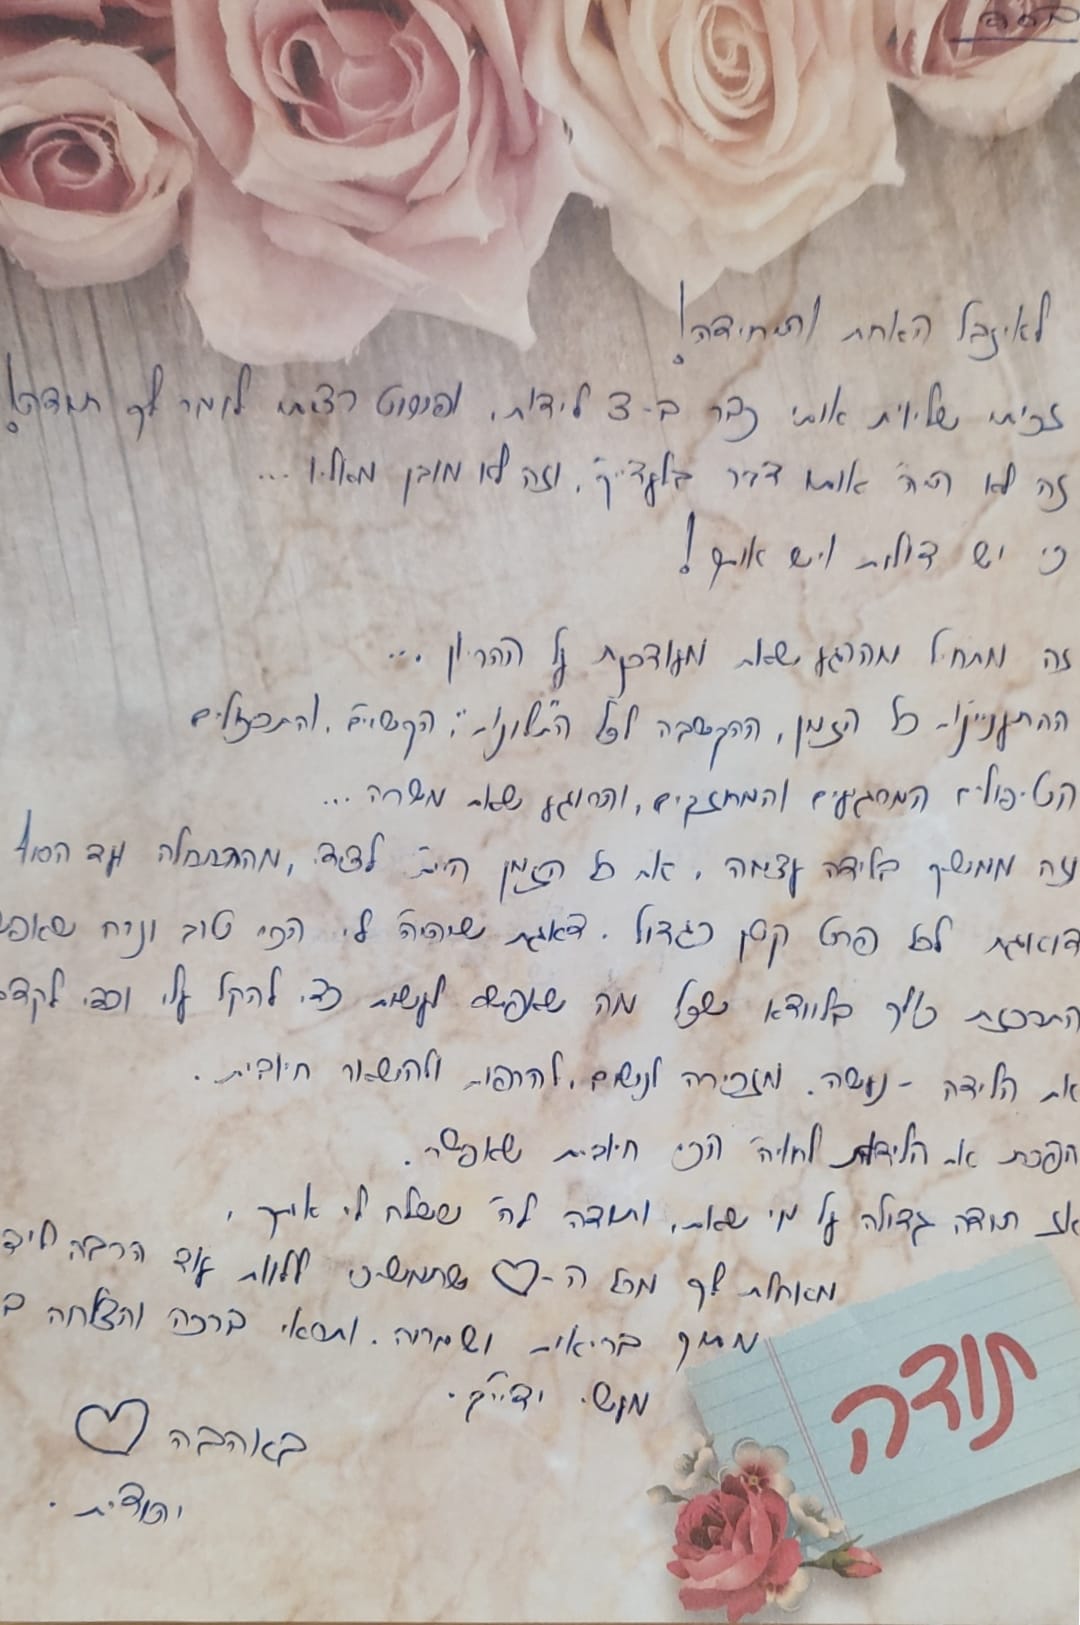 בס"ד
לאיזבל האחת והיחידה!
זכיתי שליוית אותי כבר ב-3 לידות, ופשוט רציתי לומר לך תודה!
זה לא היה אותו דבר בלעדייך, וזה לא מובן מאליו...
כי יש דולות ויש אותך!
זה מתחיל מהרגע שאת מעודכנת על ההריון ...
ההתעניינות כל הזמן, ההקשבה לכל ה"תלונות", הקשיים, והתכלס
הטיפולים המרגיעים והמחזקים, והרוגע שאת משרה ...
וזה ממשיך בלידה עצמה, את כל הזמן היית לצידי, מההתחלה ועד הסוף
דואגת לכל פרט קטן כגדול. דאגת שיהיה לי הכי טוב ונח
התרכזת כולך בלוודא שכל מה שאפשר לעשות כדי להקל עלי וכדי לקדם
את הלידה - נעשה. מזכירה לנשום, להרפות ולהישאר חיובית.
הפכת את הלידות לחויה הכי חיובית שאפשר.
אז תודה גדולה על מי שאת, ותודה לה' ששלח לי אותך,
מאחלת לך מכל ה-♡ שתמשיכי ללוות עוד הרבה
מתוך בריאות ושמחה. ותראי ברכה והצלחה ב
מעשי ידייך.
באהבה ♡
יהודית.
תודה